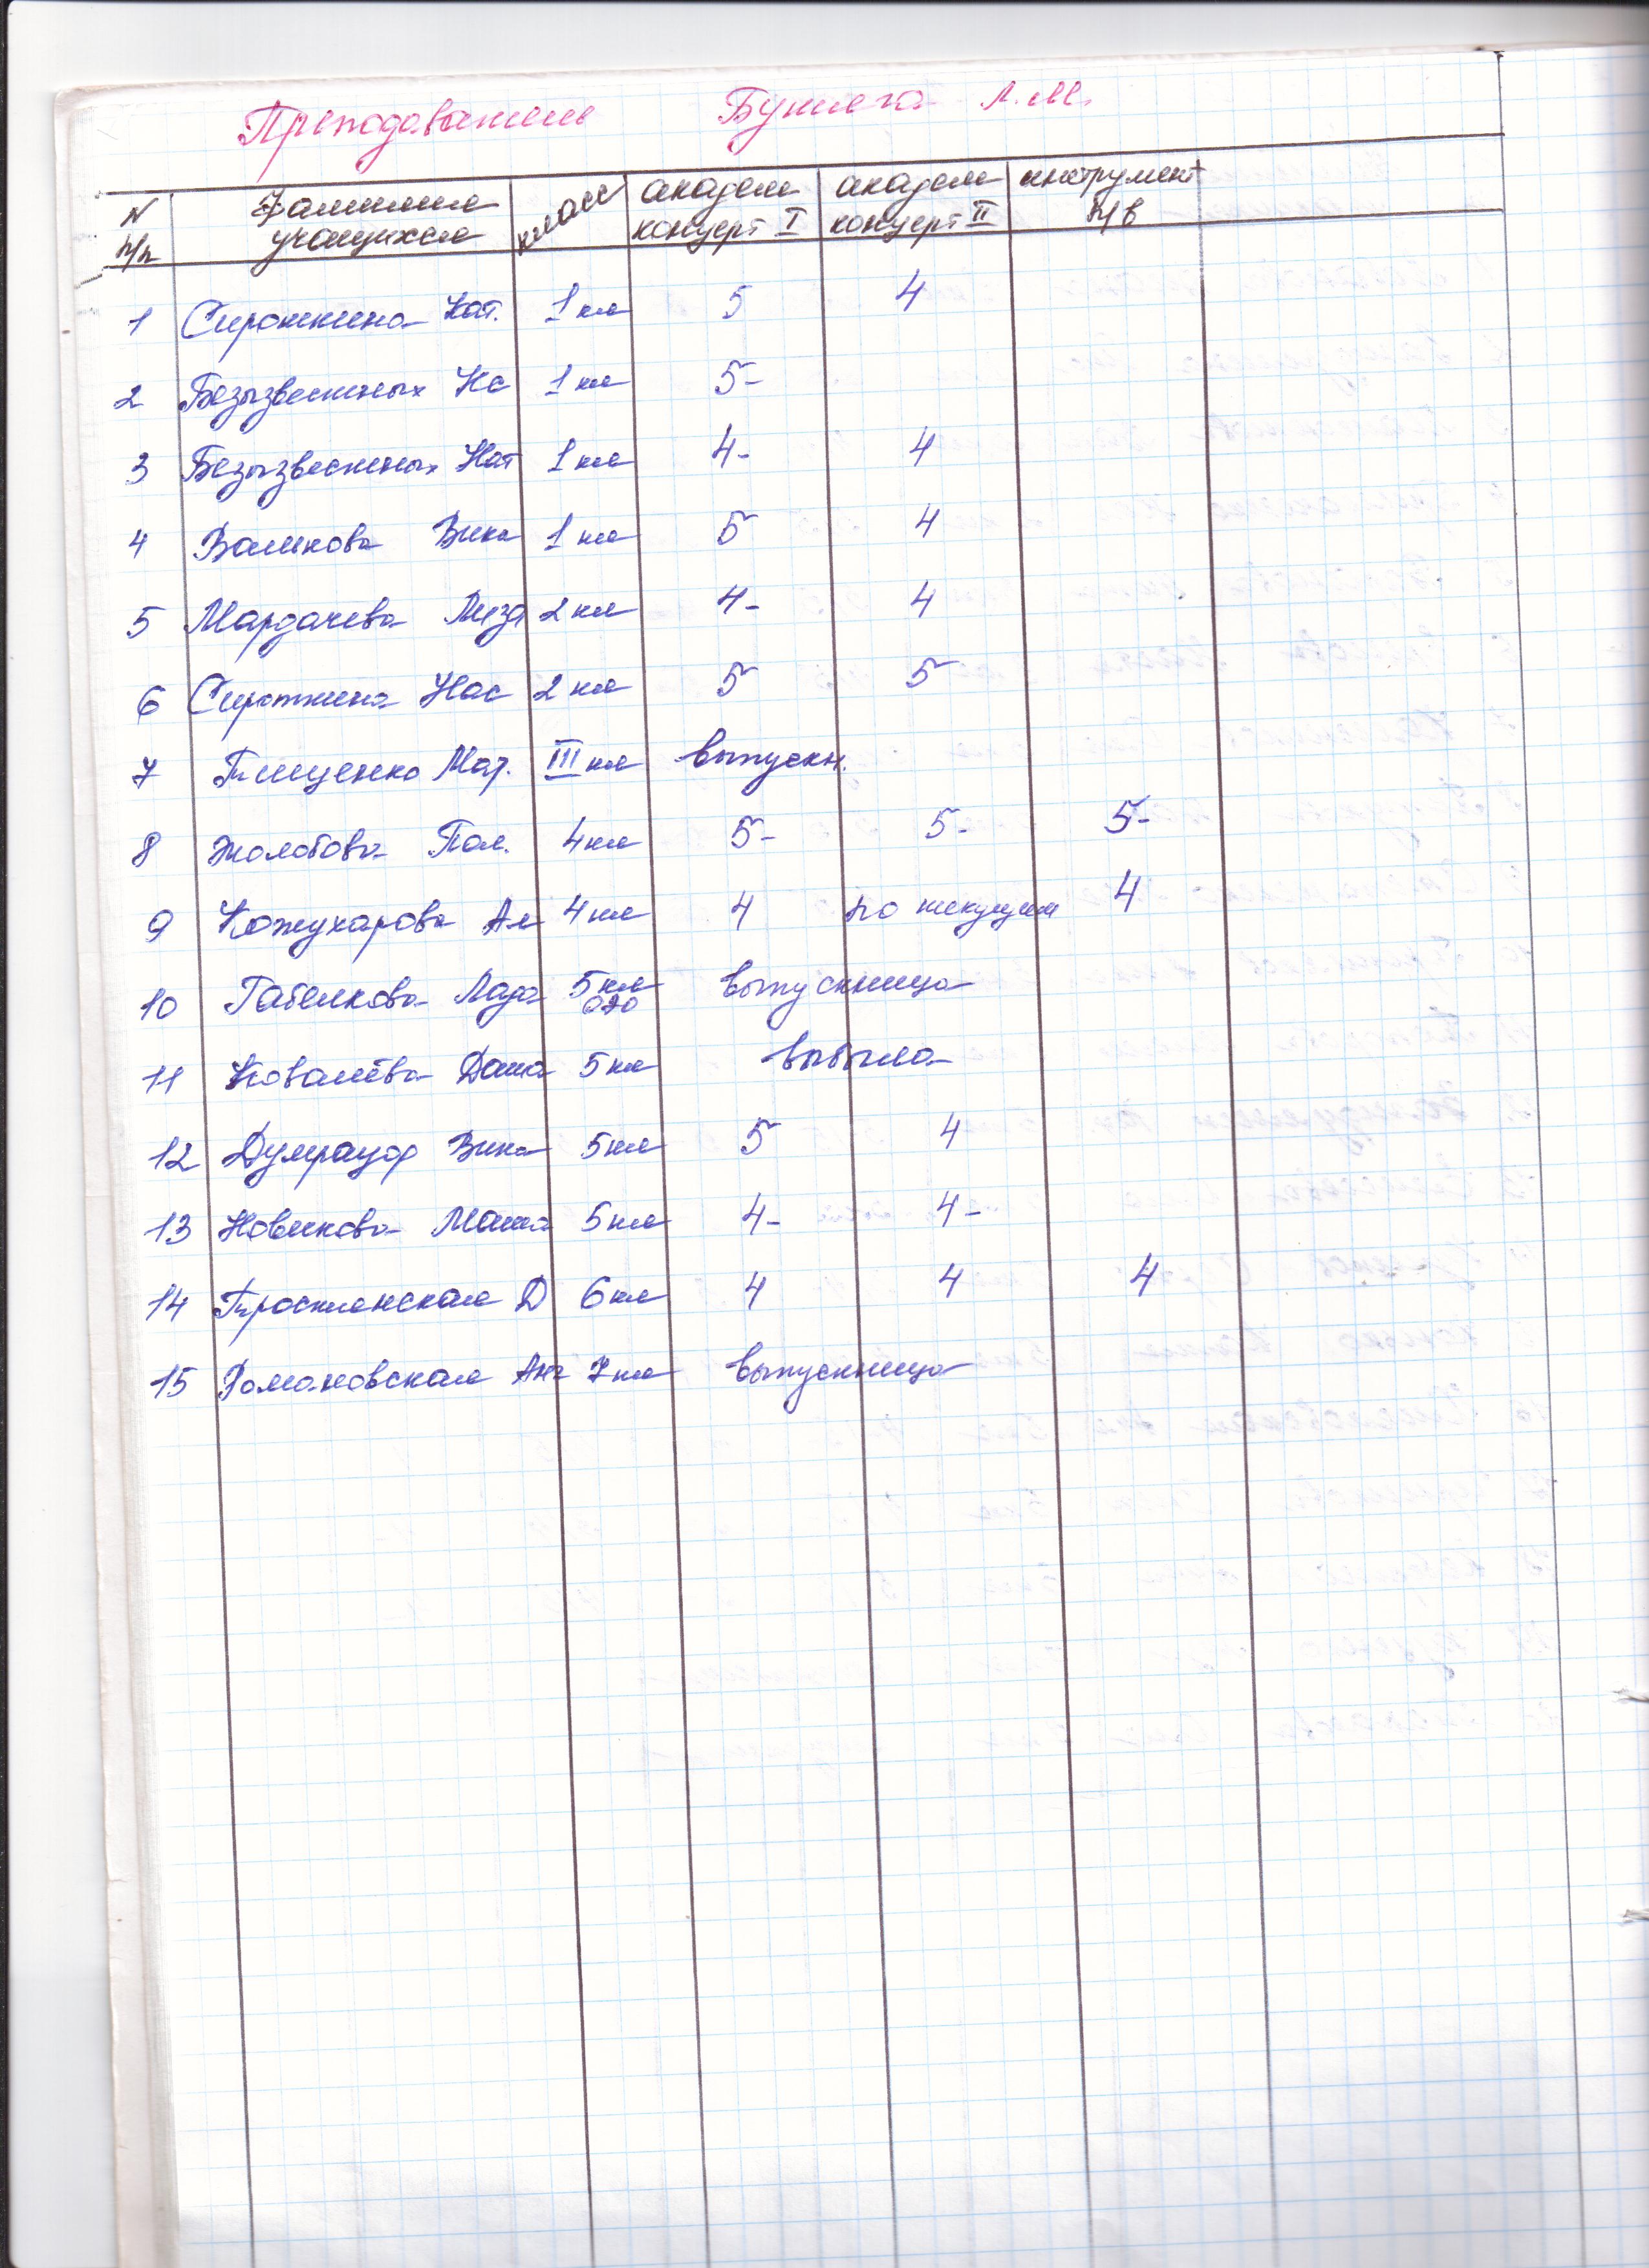 Преподаватель Бунега Л.М.
N п/п Фамилия учащихся класс академ концерт I академ концерт II инструмент п/в
1 Сироткина Кат. 1 кл 5 4
2 Безызвестных Кс 1 кл 5-
3 Безызвестных Нат 1 кл 4- 4
4 Валикова Вика 1 кл 5 4
5 Мардачева Лиза 2 кл 4- 4
6 Сироткина Нас 2 кл 5 5
7 Тищенко Мар. III кл выпускн.
8 Жолобова Пол. 4 кл 5- 5- 5-
9 Кожухарова Ал 4 кл 4 по текущим 4
10 Габелкова Лада 5 кл ОЭО выпускница
11 Ковалёва Даша 5 кл выбыла
12 Думрауф Вика 5 кл 5 4
13 Новикова Маша 5 кл 4- 4-
14 Тростянская Д 6 кл 4 4 4
15 Романовская Анг 7 кл выпускница